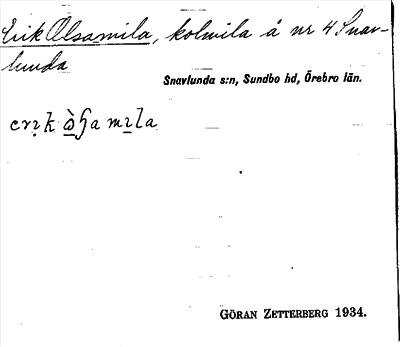 Erik Olsamila, kolmila å nr 4 Snav-
lunda
Snavlunda s:n, Sundbo hd, Örebro län.
GÖRAN ZETTERBERG 1934.